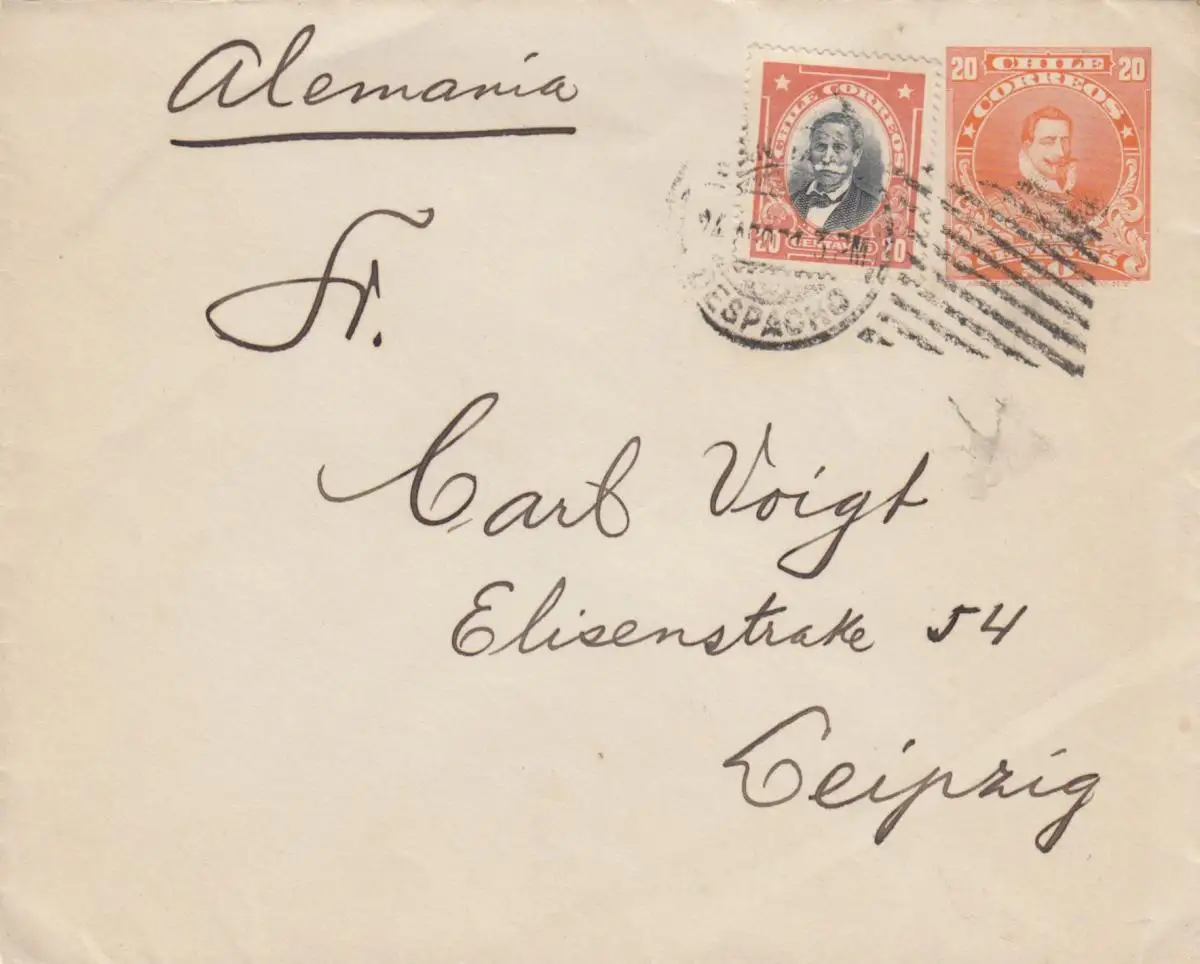 Alemania
CHILE CORREOS
20 CENTAVOS 20
20 CHILE 20
CORREOS
20
3 PM
DESPACHO
Fr.
Carl Voigt
Elisenstraße 54
Leipzig